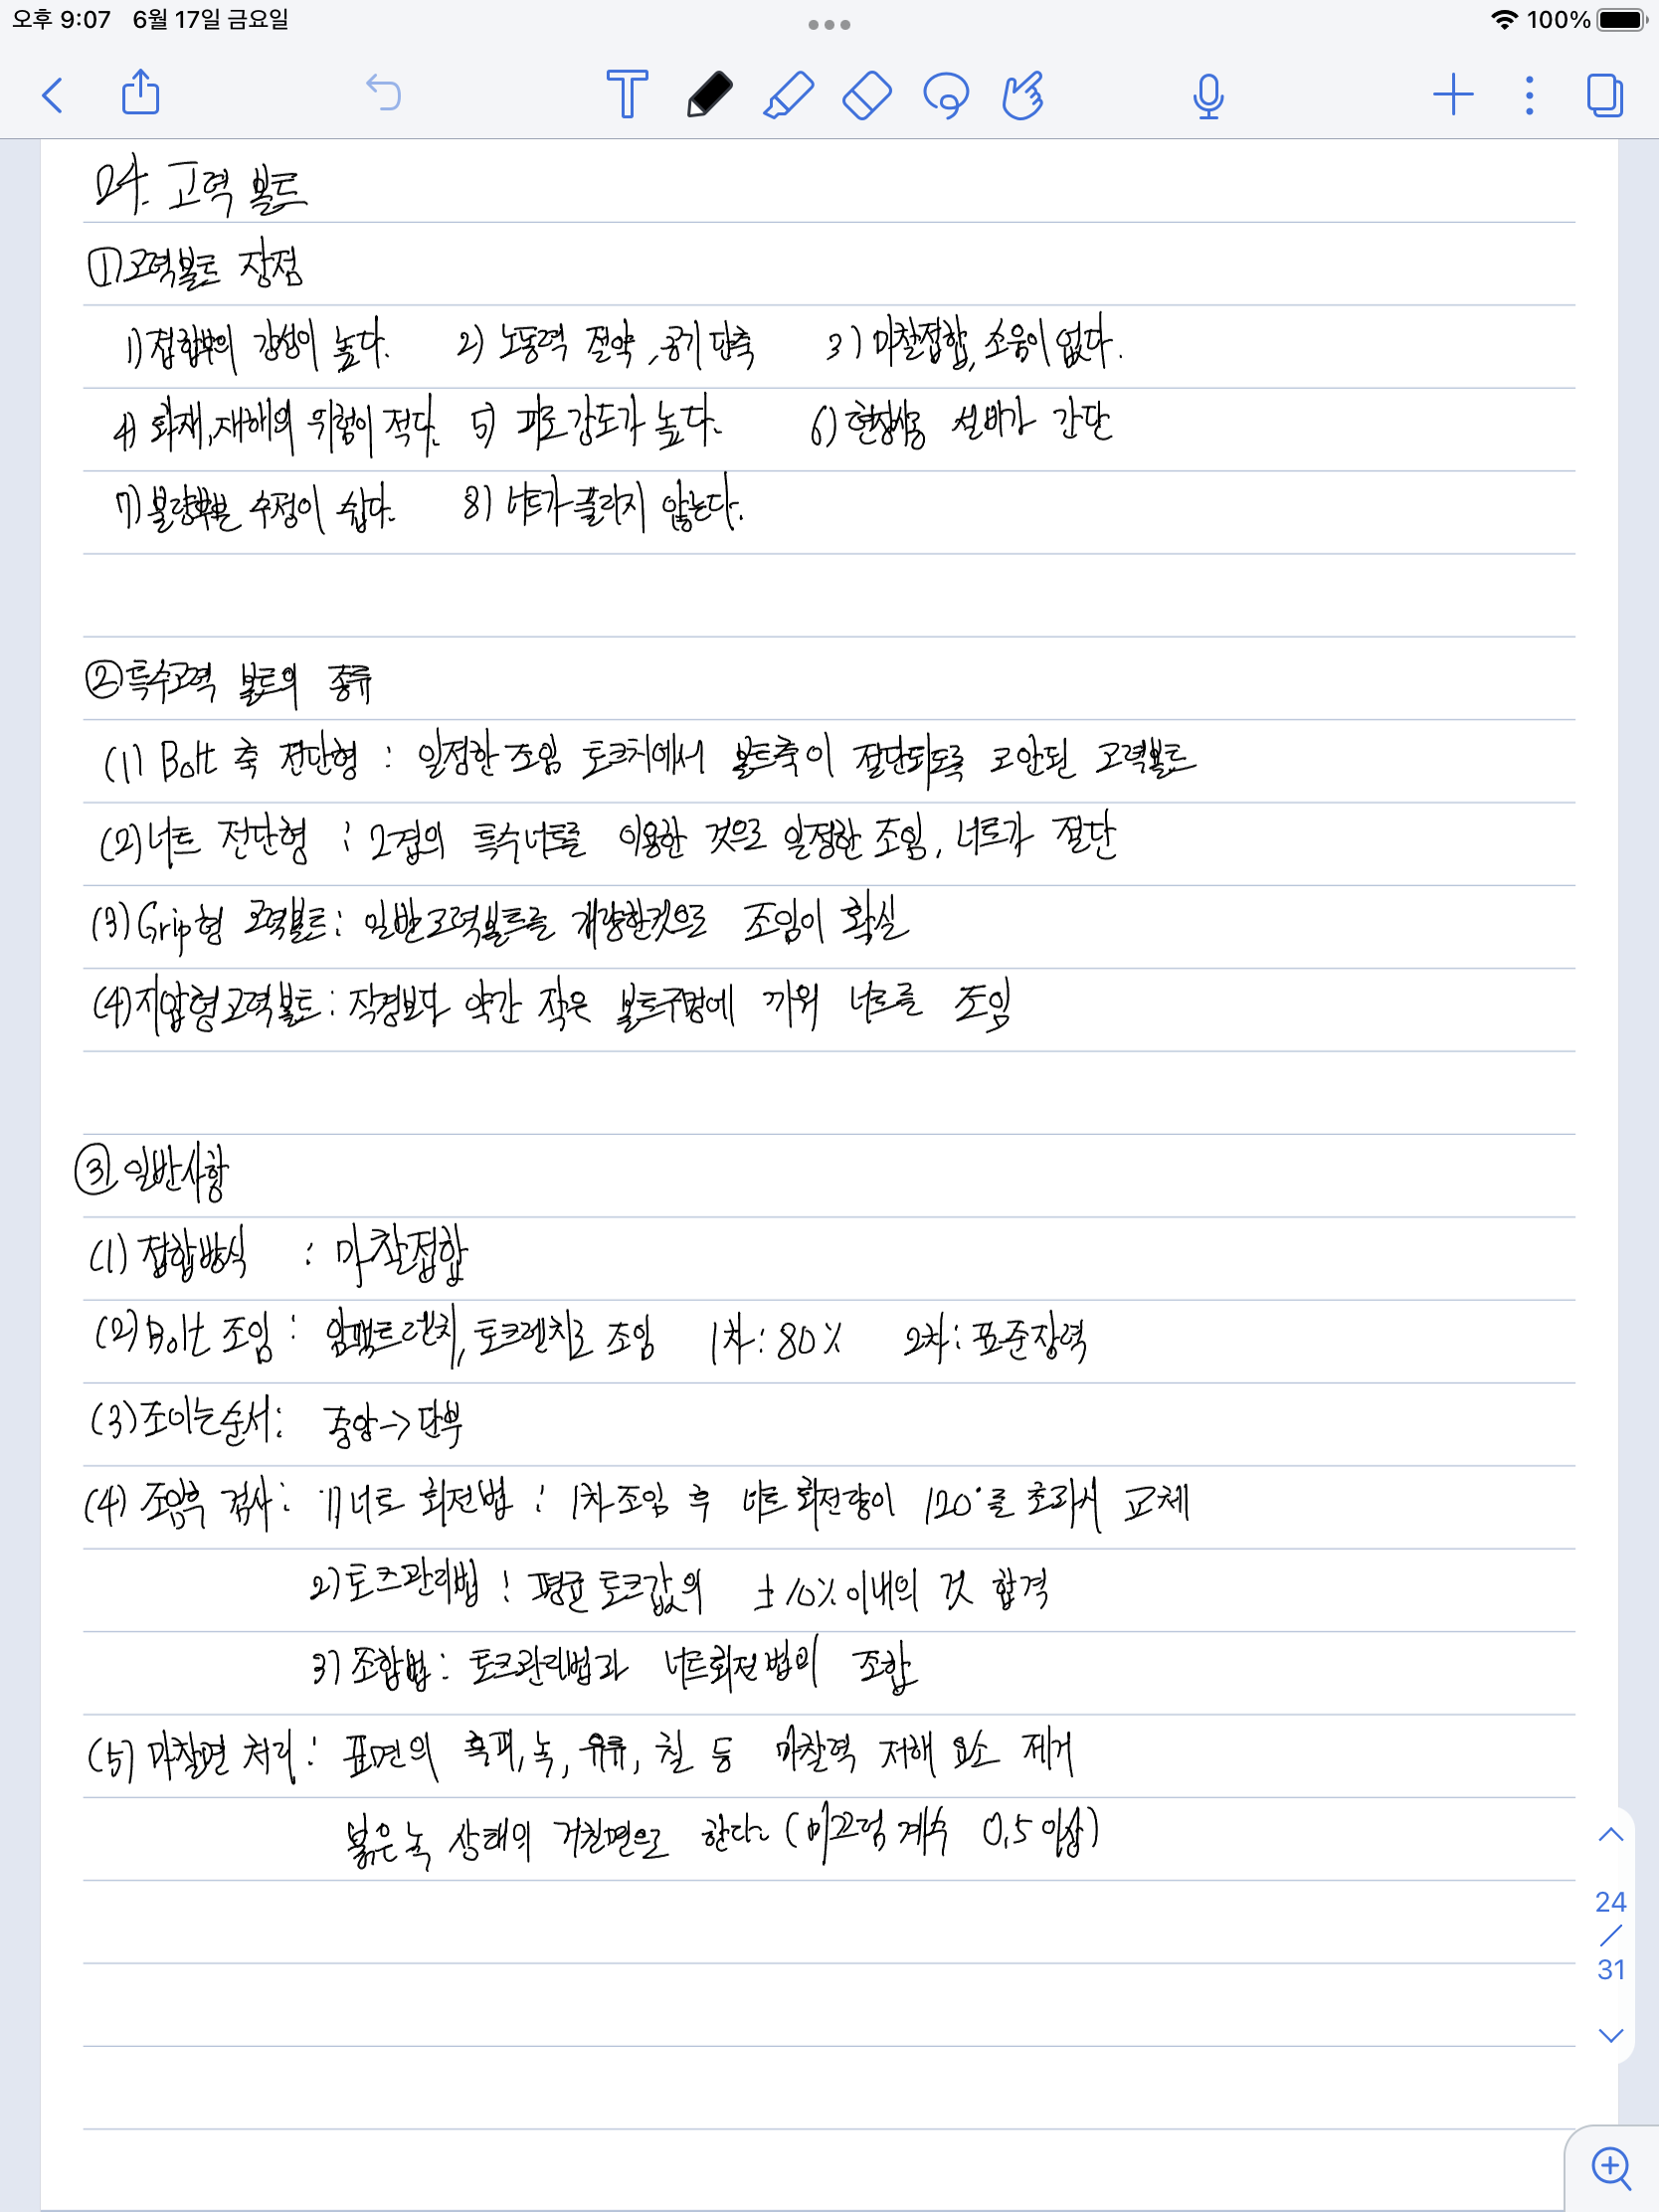 오후 9:07 6월 17일 금요일 100%
24. 고력 볼트
①고력볼트 장점
1)접합부의 강성이 높다. 2) 노동력 절약, 공기단축 3) 마찰접합, 소음이 없다.
4) 화재,재해의 위험이 적다. 5) 피로강도가 높다. 6)현장시공 설비가 간단
7)불량부분 수정이 쉽다. 8) 너트가 풀리지 않는다.
②특수고력 볼트의 종류
(1) Bolt 축 전단형 : 일정한 조임 토크치에서 볼트축이 절단되도록 고안된 고력볼트
(2)너트 전단형 : 2겹의 특수너트를 이용한 것으로 일정한 조임, 너트가 절단
(3)Grip형 고력볼트: 일반고력볼트를 개량한것으로 조임이 확실
(4)지압형고력볼트: 직경보다 약간 작은 볼트구멍에 끼워 너트를 조임
③ 일반사항
(1) 접합방식 : 마찰접합
(2)Bolt 조임: 임팩트렌치, 토크렌치로 조임 1차: 80% 2차: 표준장력
(3)조이는순서: 중앙->단부
(4) 조임후 검사: 1)너트 회전법 : 1차조임 후 너트 회전량이 120°를 초과시 교체
2)토크관리법 : 평균토크값의 ±10%이내의 것 합격
3) 조합법: 토크관리법과 너트회전법의 조합
(5) 마찰면 처리: 표면의 흑피, 녹, 유류, 칠 등 마찰력 저해 요소 제거
붉은녹 상태의 거친면으로 한다. (미끄럼계수 0.5 이상)
24
/
31